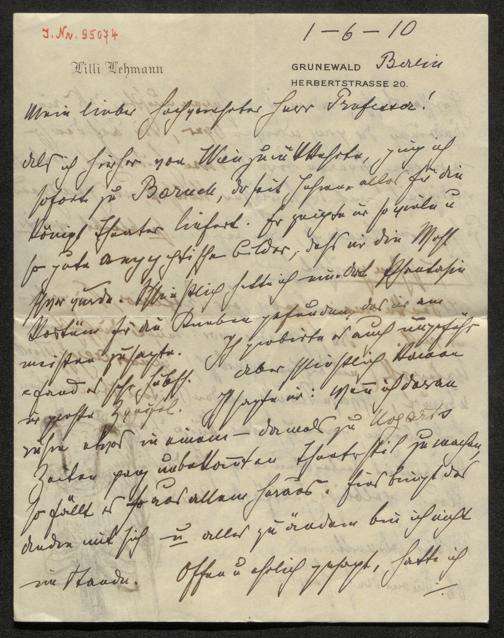 I. Nr. 95074
1-6-10
Lilli Lehmann
GRUNEWALD Berlin
HERBERTSTRASSE 20.
Mein lieber hochverehrter Herr Professor!
Als ich hierher von Wien zurückkehrte, ging ich
sofort zu Baruch, der seit Jahren alles für die
königl Theater liefert. Er zeigte mir so viele u
so gute Bilder, daß mir die Wahl
schwer wurde. Schließlich hatte ich ein Phantasie
Kostüm für die Knaben gefunden, das mir am
meisten zusagte. Ich probierte es auch ungefähr
fand es sehr hübsch. Aber schließlich kamen
mir große Zweifel. Ich sagte mir: Wenn ich daran
etwas in einem – damals zu Mozarts
Zeiten ganz unbekannten Theaterstil zu machen,
so fällt es aus allem heraus. Eins bringt das
andre mit sich u alles zu ändern bin ich nicht
im Stande. Offen u ehrlich gesagt, hatte ich